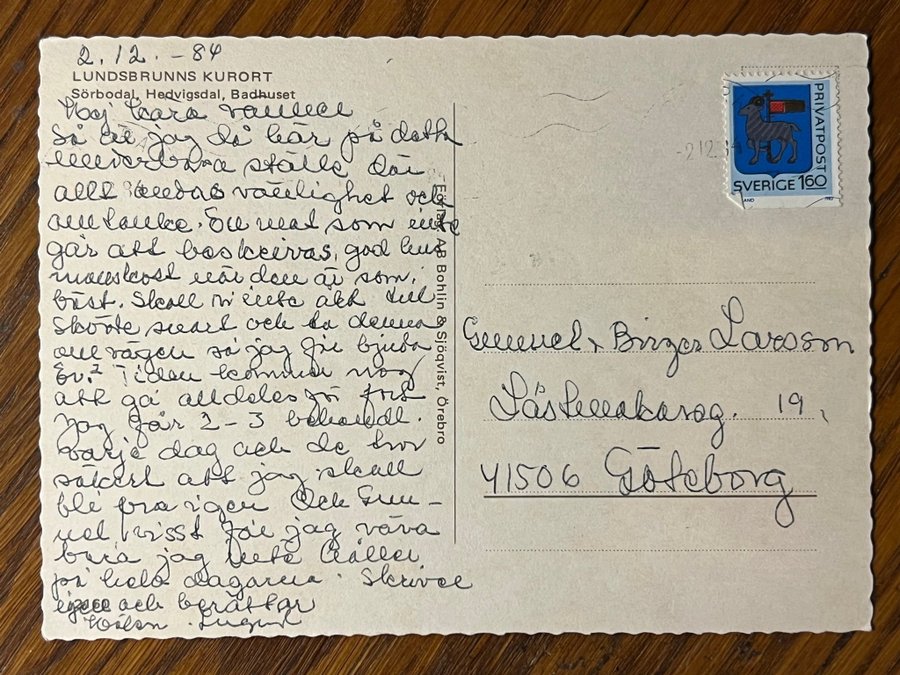 2.12.-84
LUNDSBRUNNS KURORT
Sörbodal, Hedvigsdal, Badhuset
Hej kära vänner
Så är jag då här på detta
underbara ställe där
allt andas vänlighet och
omtanke. En mat som inte
går att beskrivas, god hus
manskost när den är som
bäst. Skall ni inte åka till
Skövde snart och ta denna
omvägen så jag får bjuda
Er? Tiden kommer nog
att gå alldeles för fort
jag får 2-3 behandl.
varje dag och de tror
säkert att jag skall
bli bra igen Och Gun-
nel, visst får jag väva
bara jag inte håller
på hela dagarna. Skriver
igen och berättar
Hälsn.
Förlag: AB Bohlin & Sjöqvist, Örebro
PRIVATPOST
SVERIGE 160
1982
Gunnel, Birger Larsson
Låsmakareg. 19,
41506 Göteborg